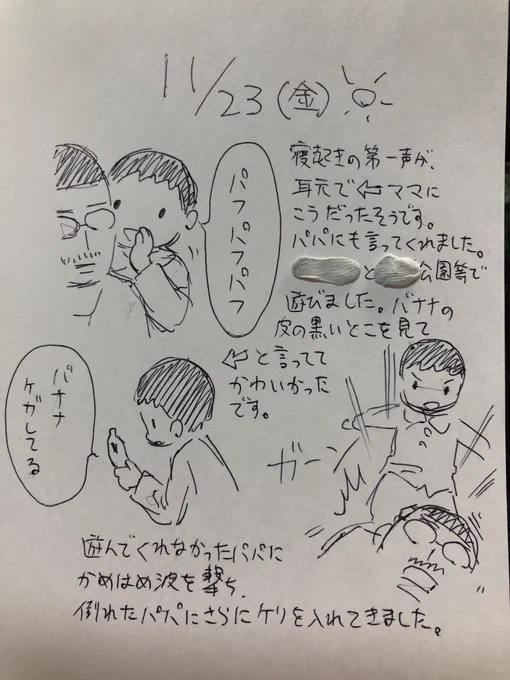 11/23(金)
寝起きの第一声が、
耳元で⇦ママに
こうだったそうです。
パパにも言ってくれました。
と公園等で
遊びました。バナナの
皮の黒いとこを見て
パフパフパフ
⇦と言ってて
かわいかった
です。
バナナ
ケガしてる
ガーン
遊んでくれなかったパパに
かめはめ波を撃ち、
倒れたパパにさらにケリを入れてきました。